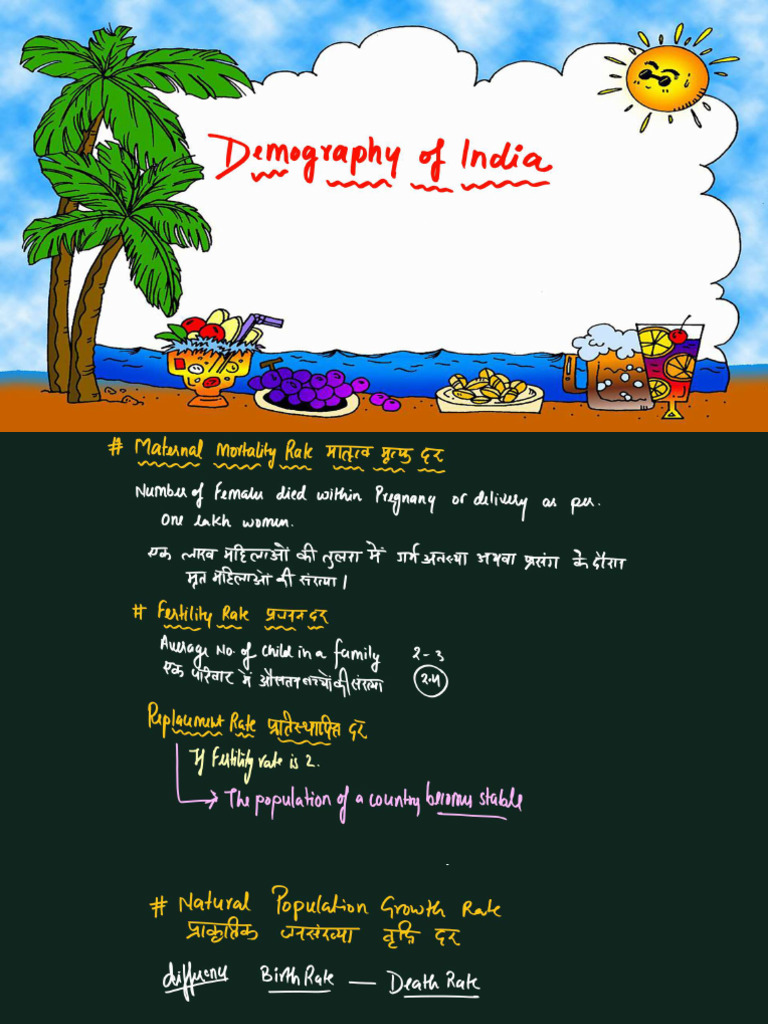 Demography of India
# Maternal Mortality Rate मातृत्व मृत्यु दर
Number of Females died within Pregnany or delivery as per.
One lakh women.
एक लाख महिलाओं की तुलना में गर्भ अवस्था अथवा प्रसंग के दौरान
मृत महिलाओं की संख्या।
# Fertility Rate प्रजनन दर
Average No. of child in a family 2-3
एक परिवार में औसतन बच्चों की संख्या 2.4
Replacement Rate प्रतिस्थापित दर
If Fertility rate is 2.
The population of a country becomes stable
# Natural Population Growth Rate
प्राकृतिक जनसंख्या वृद्धि दर
difference Birth Rate — Death Rate